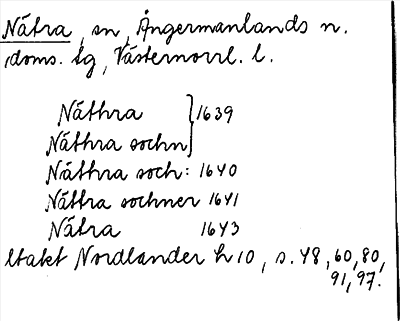 Nätra, sn, Ångermanlands n.
doms. tg, Västernorrl. l.
Näthra } 1639
Näthra sochn
Näthra soch: 1640
Näthra sochner 1641
Nätra 1643
Utakt Nordlander h 10, s. 48, 60, 80,
91, 97.